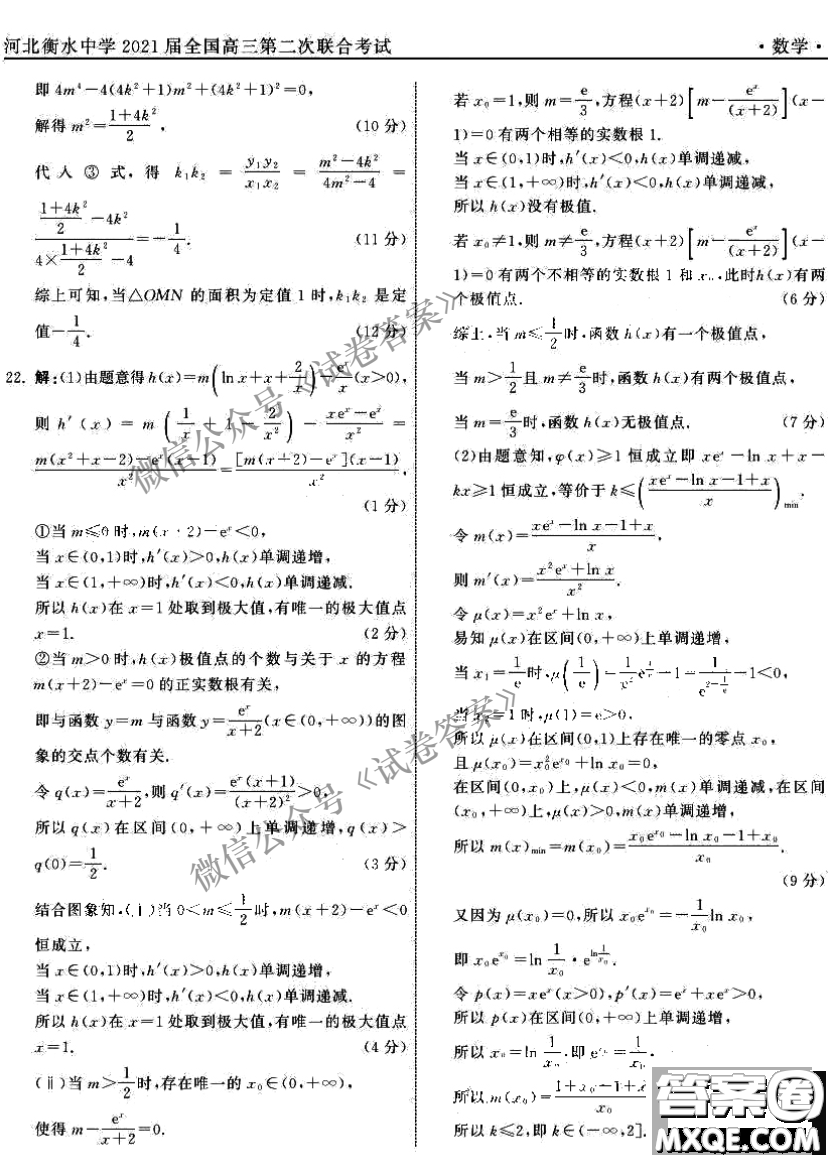 河北衡水中学 2021 届全国高三第二次联合考试
·数学·
即 4m⁴-4(4k²+1)m²+(4k²+1)²=0,
解得 m²=(1+4k²)/2. (10 分)
代 人 ③ 式, 得 k₁k₂ = y₁y₂/x₁x₂ = (m²-4k²)/(4m²-4) =
((1+4k²)/2-4k²)/(4×(1+4k²)/2-4)=-1/4. (11 分)
综上可知,当△OMN 的面积为定值 1 时,k₁k₂ 是定
值-1/4. (12 分)
22. 解:(1)由题意得 h(x)=m(ln x+x+2/x)-eˣ/x(x>0),
则 h′(x) = m (1/x+1-2/x²) - (xeˣ-eˣ)/x² =
(m(x²+x-2)-eˣ(x-1))/x²=([m(x+2)-eˣ](x-1))/x².
(1 分)
①当 m≤0 时,m(x+2)-eˣ<0,
当 x∈(0,1)时,h′(x)>0,h(x)单调递增,
当 x∈(1,+∞)时,h′(x)<0,h(x)单调递减.
所以 h(x)在 x=1 处取到极大值,有唯一的极大值点
x=1. (2 分)
②当 m>0 时,h(x)极值点的个数与关于 x 的方程
m(x+2)-eˣ=0 的正实数根有关,
即与函数 y=m 与函数 y=eˣ/(x+2)(x∈(0,+∞))的图
象的交点个数有关.
令 q(x)=eˣ/(x+2),则 q′(x)=eˣ(x+1)/(x+2)²>0,
所以 q(x)在区间(0,+∞)上单调递增,q(x)>
q(0)=1/2. (3 分)
结合图象知,(ⅰ)当 0<m≤1/2时,m(x+2)-eˣ<0
恒成立,
当 x∈(0,1)时,h′(x)>0,h(x)单调递增,
当 x∈(1,+∞)时,h′(x)<0,h(x)单调递减.
所以 h(x)在 x=1 处取到极大值,有唯一的极大值点
x=1. (4 分)
(ⅱ)当 m>1/2时,存在唯一的 x₀∈(0,+∞),
使得 m-eˣ/(x+2)=0.
若 x₀=1,则 m=e/3,方程(x+2)[m-eˣ/(x+2)](x-
1)=0 有两个相等的实数根 1.
当 x∈(0,1)时,h′(x)<0,h(x)单调递减,
当 x∈(1,+∞)时,h′(x)<0,h(x)单调递减,
所以 h(x)没有极值.
若 x₀≠1,则 m≠e/3,方程(x+2)[m-eˣ/(x+2)](x-
1)=0 有两个不相等的实数根 1 和 x₀,此时h(x)有两
个极值点. (6 分)
综上,当 m≤1/2时,函数 h(x)有一个极值点,
当 m>1/2且 m≠e/3时,函数 h(x)有两个极值点,
当 m=e/3时,函数 h(x)无极值点. (7 分)
(2)由题意知,φ(x)≥1 恒成立即 xeˣ-ln x+x-
kx≥1 恒成立,等价于 k≤((xeˣ-ln x-1+x)/x)min.
令 m(x)=(xeˣ-ln x-1+x)/x,
则 m′(x)=(x²eˣ+ln x)/x².
令 μ(x)=x²eˣ+ln x,
易知 μ(x)在区间(0,+∞)上单调递增,
当 x₁=1/e时,μ(1/e)=
当 x₂=1 时,μ(1)=e>0,
所以 μ(x)在区间(0,1)上存在唯一的零点 x₀,
且 μ(x₀)=x₀²e^x₀+ln x₀=0,
在区间(0,x₀)上,μ(x)<0,m(x)单调递减,在区间
(x₀,+∞)上,μ(x)>0,m(x)单调递增,
所以 m(x)min=m(x₀)=(x₀e^x₀-ln x₀-1+x₀)/x₀.
(9 分)
又因为 μ(x₀)=0,所以 x₀e^x₀=-1/x₀ ln x₀,
即 x₀e^x₀=ln 1/x₀·e^(ln 1/x₀).
令 p(x)=xeˣ(x>0),p′(x)=eˣ+xeˣ>0,
所以 p(x)在区间(0,+∞)上单调递增,
所以 x₀=ln 1/x₀,即 e^x₀=1/x₀.
所以 m(x₀)=
所以 k≤2,即 k∈(-∞,2].
微信公众号《试卷答案》
微信公众号《试卷答案》
答案卷
MXQE.COM